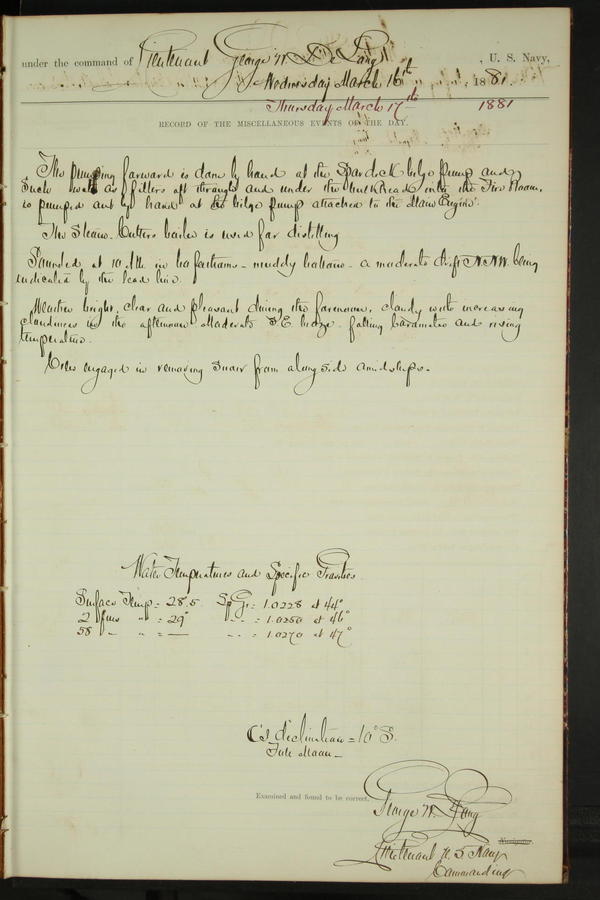 under the command of Lieutenant George W. De Long, U. S. Navy,
Wednesday March 16th, 1881.
Thursday March 17th 1881
RECORD OF THE MISCELLANEOUS EVENTS OF THE DAY.
The pumping forward is done by hand at the Spar deck bilge pump and
Such water as filters aft through and under the bulkhead into the Fire Room,
is pumped out by hand at the bilge pump attached to the Main Engine.
The Steam Cutters boiler is used for distilling
Sounded at 10 A.M. in fathoms - muddy bottom - a moderate drift N.N.W. being
indicated by the lead line.
Weather bright, clear and pleasant during the forenoon, cloudy with increasing
cloudiness in the afternoon Moderate S.E. breeze. falling barometer and rising
temperature.
Crew engaged in removing Snow from along side amidships.
Water Temperatures and Specific Gravities
Surface Temp = 28.5 Sp Gr = 1.0228 at 44°
2 fms " = 29° " " = 1.0250 at 46°
58 " " = — " " = 1.0270 at 47°
C's declination = 10° S.
Full Moon -
Examined and found to be correct.
George W. De Long
Navigator.
Lieutenant U. S. Navy
Commanding